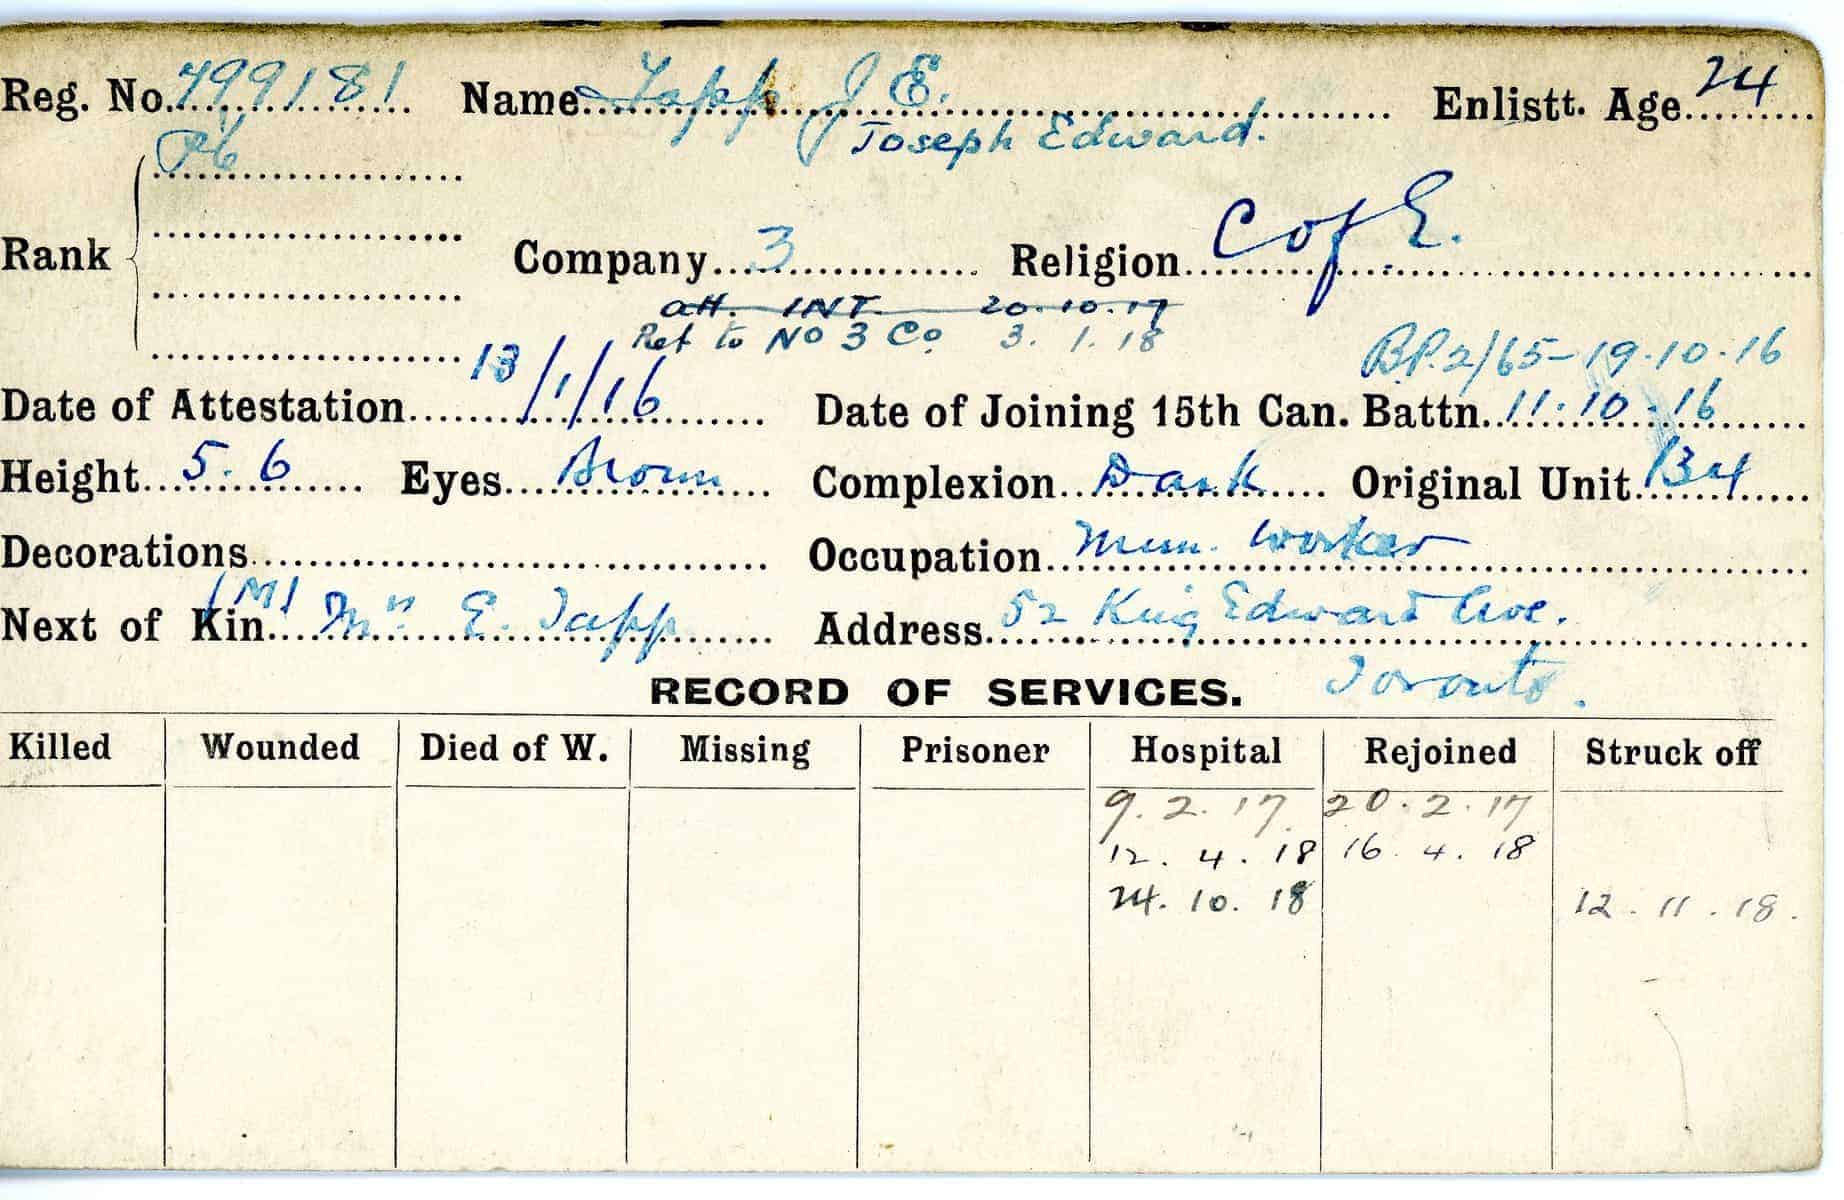 Reg. No. 799181 Name Tapp J E. Enlistt. Age 24
Joseph Edward.
Pte
Rank Company 3 Religion C of E.
att. INT. 20.10.17
Ret to No 3 Co 3. 1. 18
BP.2/65-19.10.16
Date of Attestation 13/1/16 Date of Joining 15th Can. Battn. 11.10.16
Height 5.6 Eyes Brown Complexion Dark Original Unit 134
Decorations Occupation Mun. worker
Next of Kin (M) Mrs E. Tapp Address 52 King Edward Ave.
Toronto.
RECORD OF SERVICES.
Killed Wounded Died of W. Missing Prisoner Hospital Rejoined Struck off
9.2.17 20.2.17
12.4.18 16.4.18
24.10.18 12.11.18.